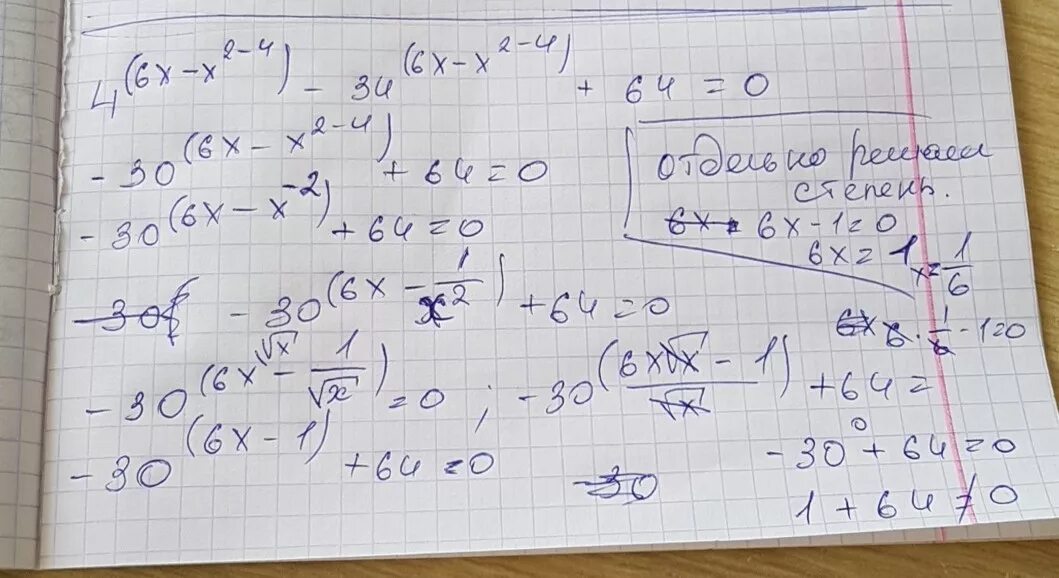 4^(6x-x^2-4) - 34^(6x-x^2-4) + 64 = 0
-30^(6x-x^2-4) + 64 = 0
-30^(6x-x^-2) + 64 = 0
отдельно решаем
степень.
6x 6x-1=0
6x=1 x=1/6
6x 6·1/6-1=0
-30 -30^(6x-1/x^2) + 64 = 0
-30^(6x^√x - 1/√x) = 0 ; -30^((6x√x - 1)/√x) + 64 =
-30^(6x-1) + 64 = 0
-30
-30^0 + 64 = 0
1 + 64 ≠ 0